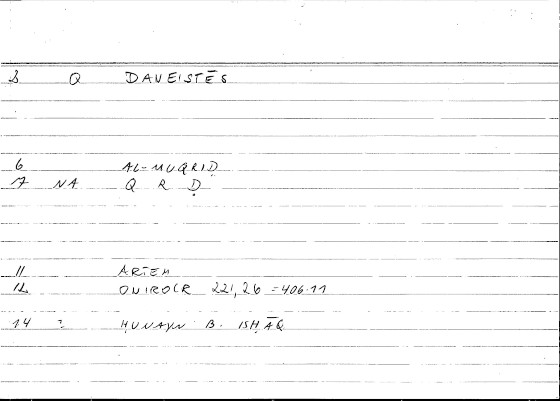 3 Q DAVEISTĒS
6 AL-MUQRIḌ
7 NA Q R Ḍ
11 ARTEM
12 ONIROCR 221,26 = 406.11
14 : ḤUNAYN B. ISḤĀQ